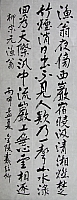 漁翁夜傍西巖宿曉汲清湘燃楚
竹煙銷日出不見人欸乃一聲山水
緑回看天際下中流巖上無心雲相逐
柳宗元漁翁
丙申孟夏